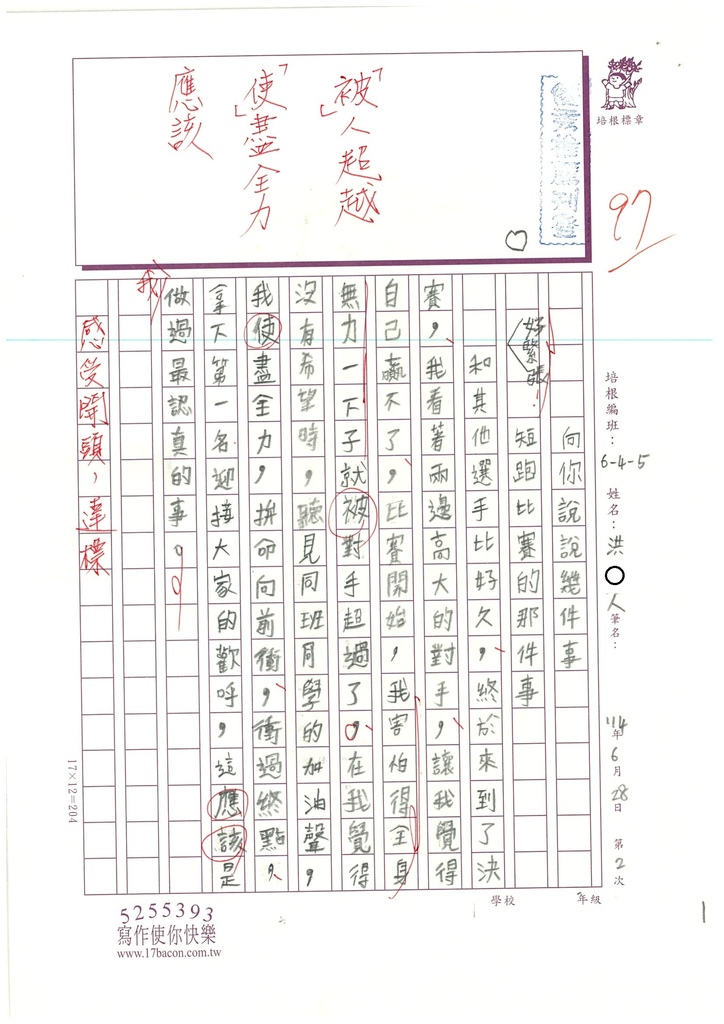 培根標章
97
「被」人超越
「使」盡全力
應該
培根編班：6-4-5
姓名：洪○人
筆名：
114年6月28日 第2次
年級
學校
向你說說幾件事
短跑比賽的那件事
好緊張！
和其他選手比好久，終於來到了決
賽，我看著兩邊高大的對手，讓我覺得
自己贏不了，比賽開始，我害怕得全身
無力一下子就被對手超過了，在我覺得
沒有希望時，聽見同班同學的加油聲，
我使盡全力，拚命向前衝，衝過終點，
拿下第一名迎接大家的歡呼，這應該是
我
做過最認真的事。
感受開頭，達標
17×12=204
5255393
寫作使你快樂
www.17bacon.com.tw